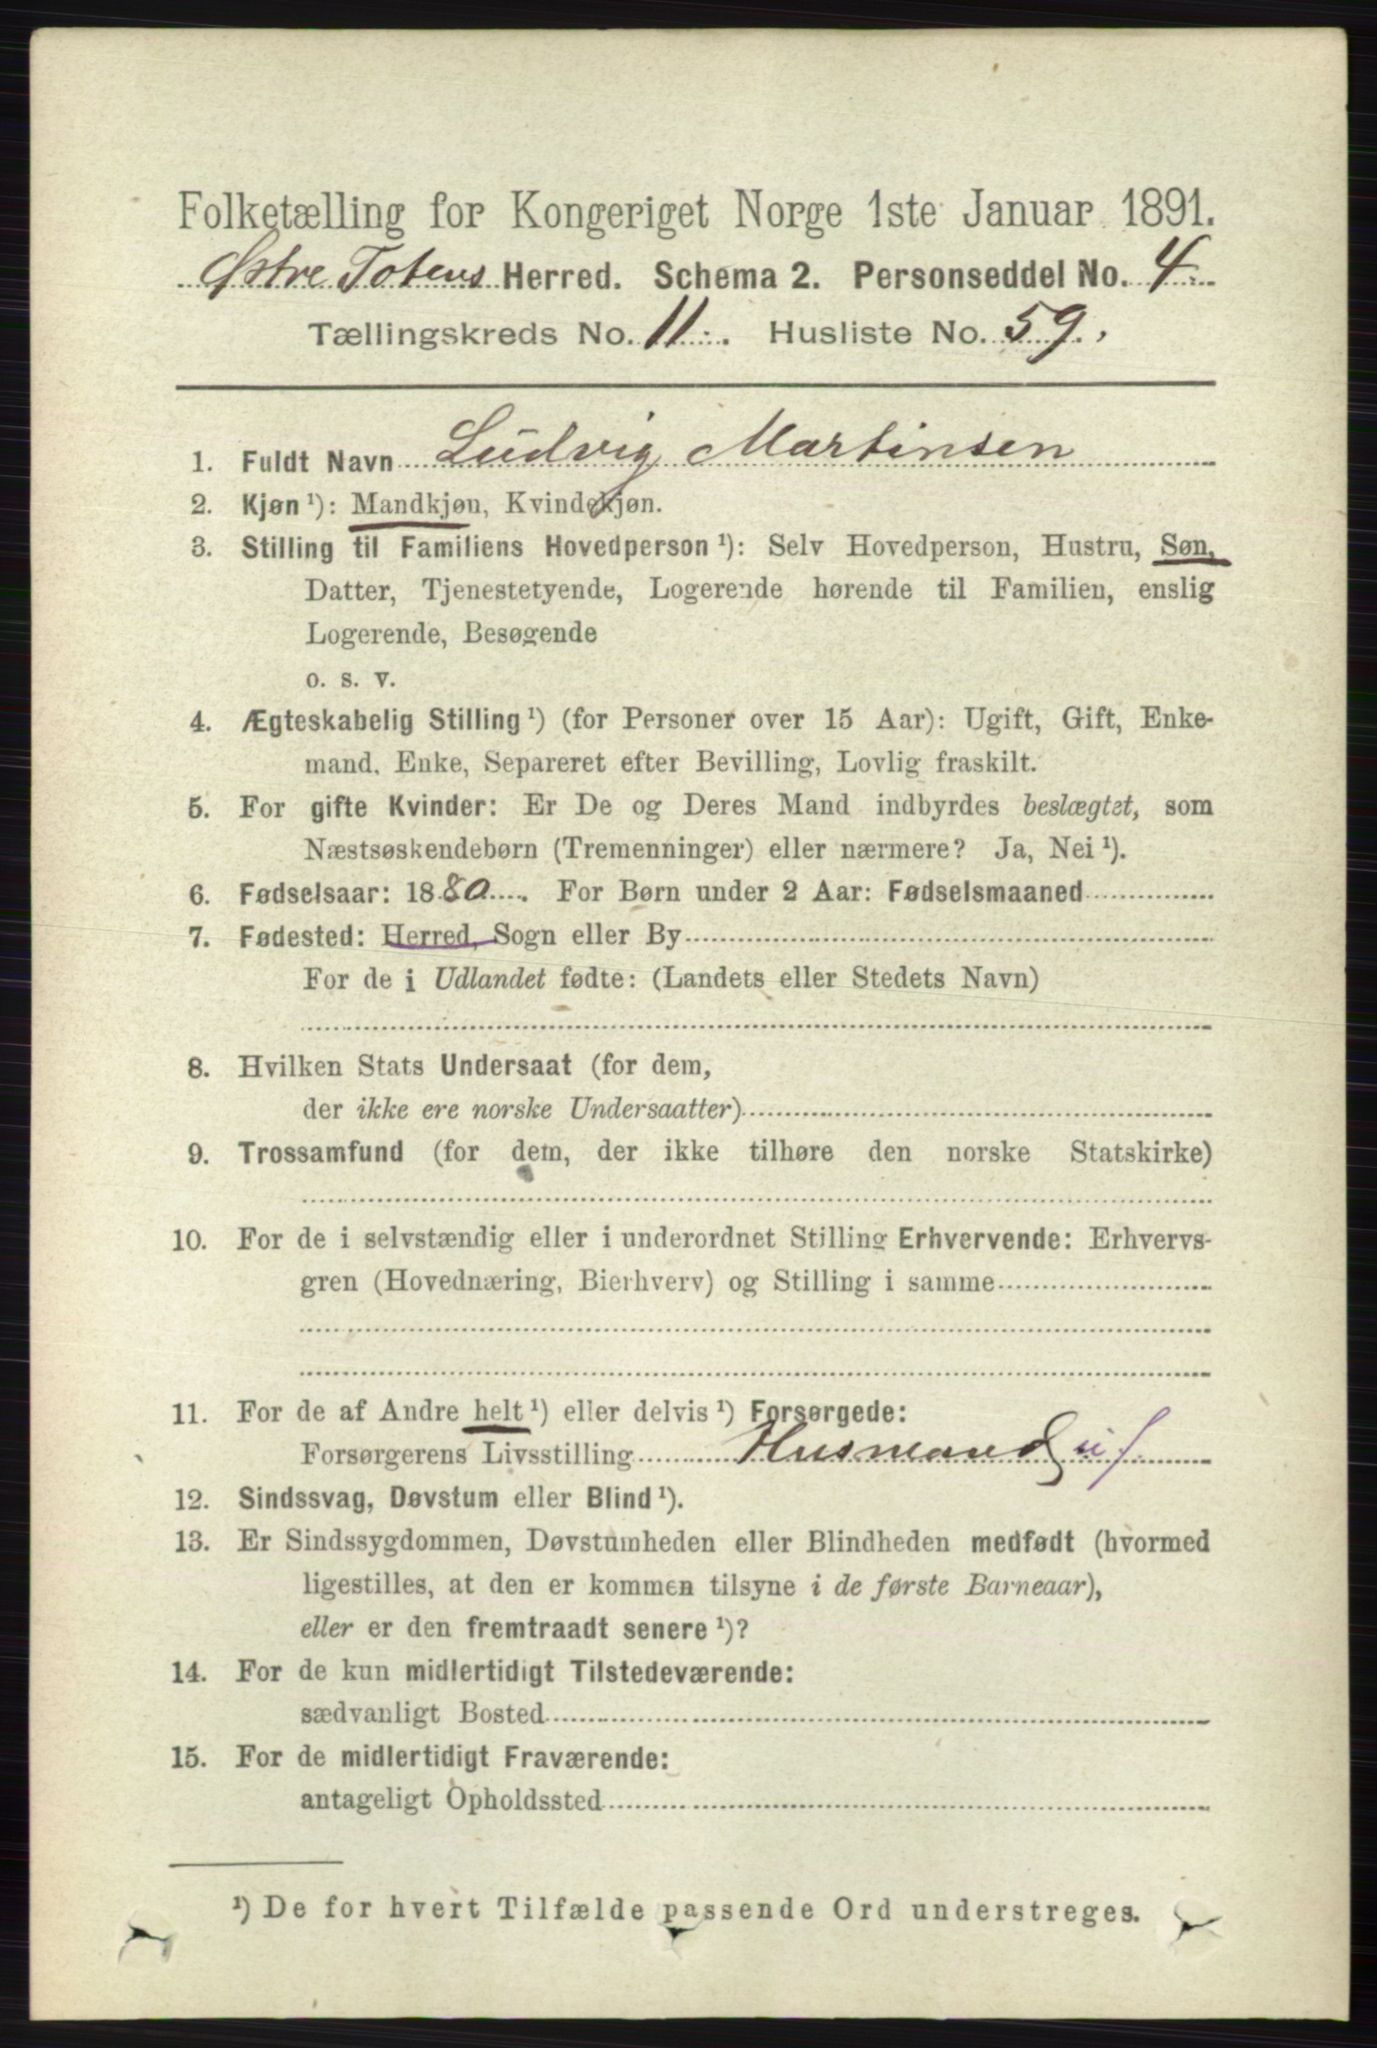 Folketælling for Kongeriget Norge 1ste Januar 1891.
Østre Totens Herred. Schema 2. Personseddel No. 4.
Tællingskreds No. 11. Husliste No. 59.
1. Fuldt Navn Ludvig Martinsen
2. Kjøn ¹): Mandkjøn, Kvindekjøn.
3. Stilling til Familiens Hovedperson ¹): Selv Hovedperson, Hustru, Søn,
Datter, Tjenestetyende, Logerende hørende til Familien, enslig
Logerende, Besøgende
o. s. v.
4. Ægteskabelig Stilling ¹) (for Personer over 15 Aar): Ugift, Gift, Enke-
mand, Enke, Separeret efter Bevilling, Lovlig fraskilt.
5. For gifte Kvinder: Er De og Deres Mand indbyrdes beslægtet, som
Næstsøskendebørn (Tremenninger) eller nærmere? Ja, Nei ¹).
6. Fødselsaar: 1880. For Børn under 2 Aar: Fødselsmaaned
7. Fødested: Herred, Sogn eller By
For de i Udlandet fødte: (Landets eller Stedets Navn)
8. Hvilken Stats Undersaat (for dem,
der ikke ere norske Undersaatter)
9. Trossamfund (for dem, der ikke tilhøre den norske Statskirke)
10. For de i selvstændig eller i underordnet Stilling Erhvervende: Erhvervs-
gren (Hovednæring, Bierhverv) og Stilling i samme
11. For de af Andre helt ¹) eller delvis ¹) Forsørgede:
Forsørgerens Livsstilling Husmand
12. Sindssvag, Døvstum eller Blind ¹).
13. Er Sindssygdommen, Døvstumheden eller Blindheden medfødt (hvormed
ligestilles, at den er kommen tilsyne i de første Barneaar),
eller er den fremtraadt senere ¹)?
14. For de kun midlertidigt Tilstedeværende:
sædvanligt Bosted
15. For de midlertidigt Fraværende:
antageligt Opholdssted
¹) De for hvert Tilfælde passende Ord understreges.